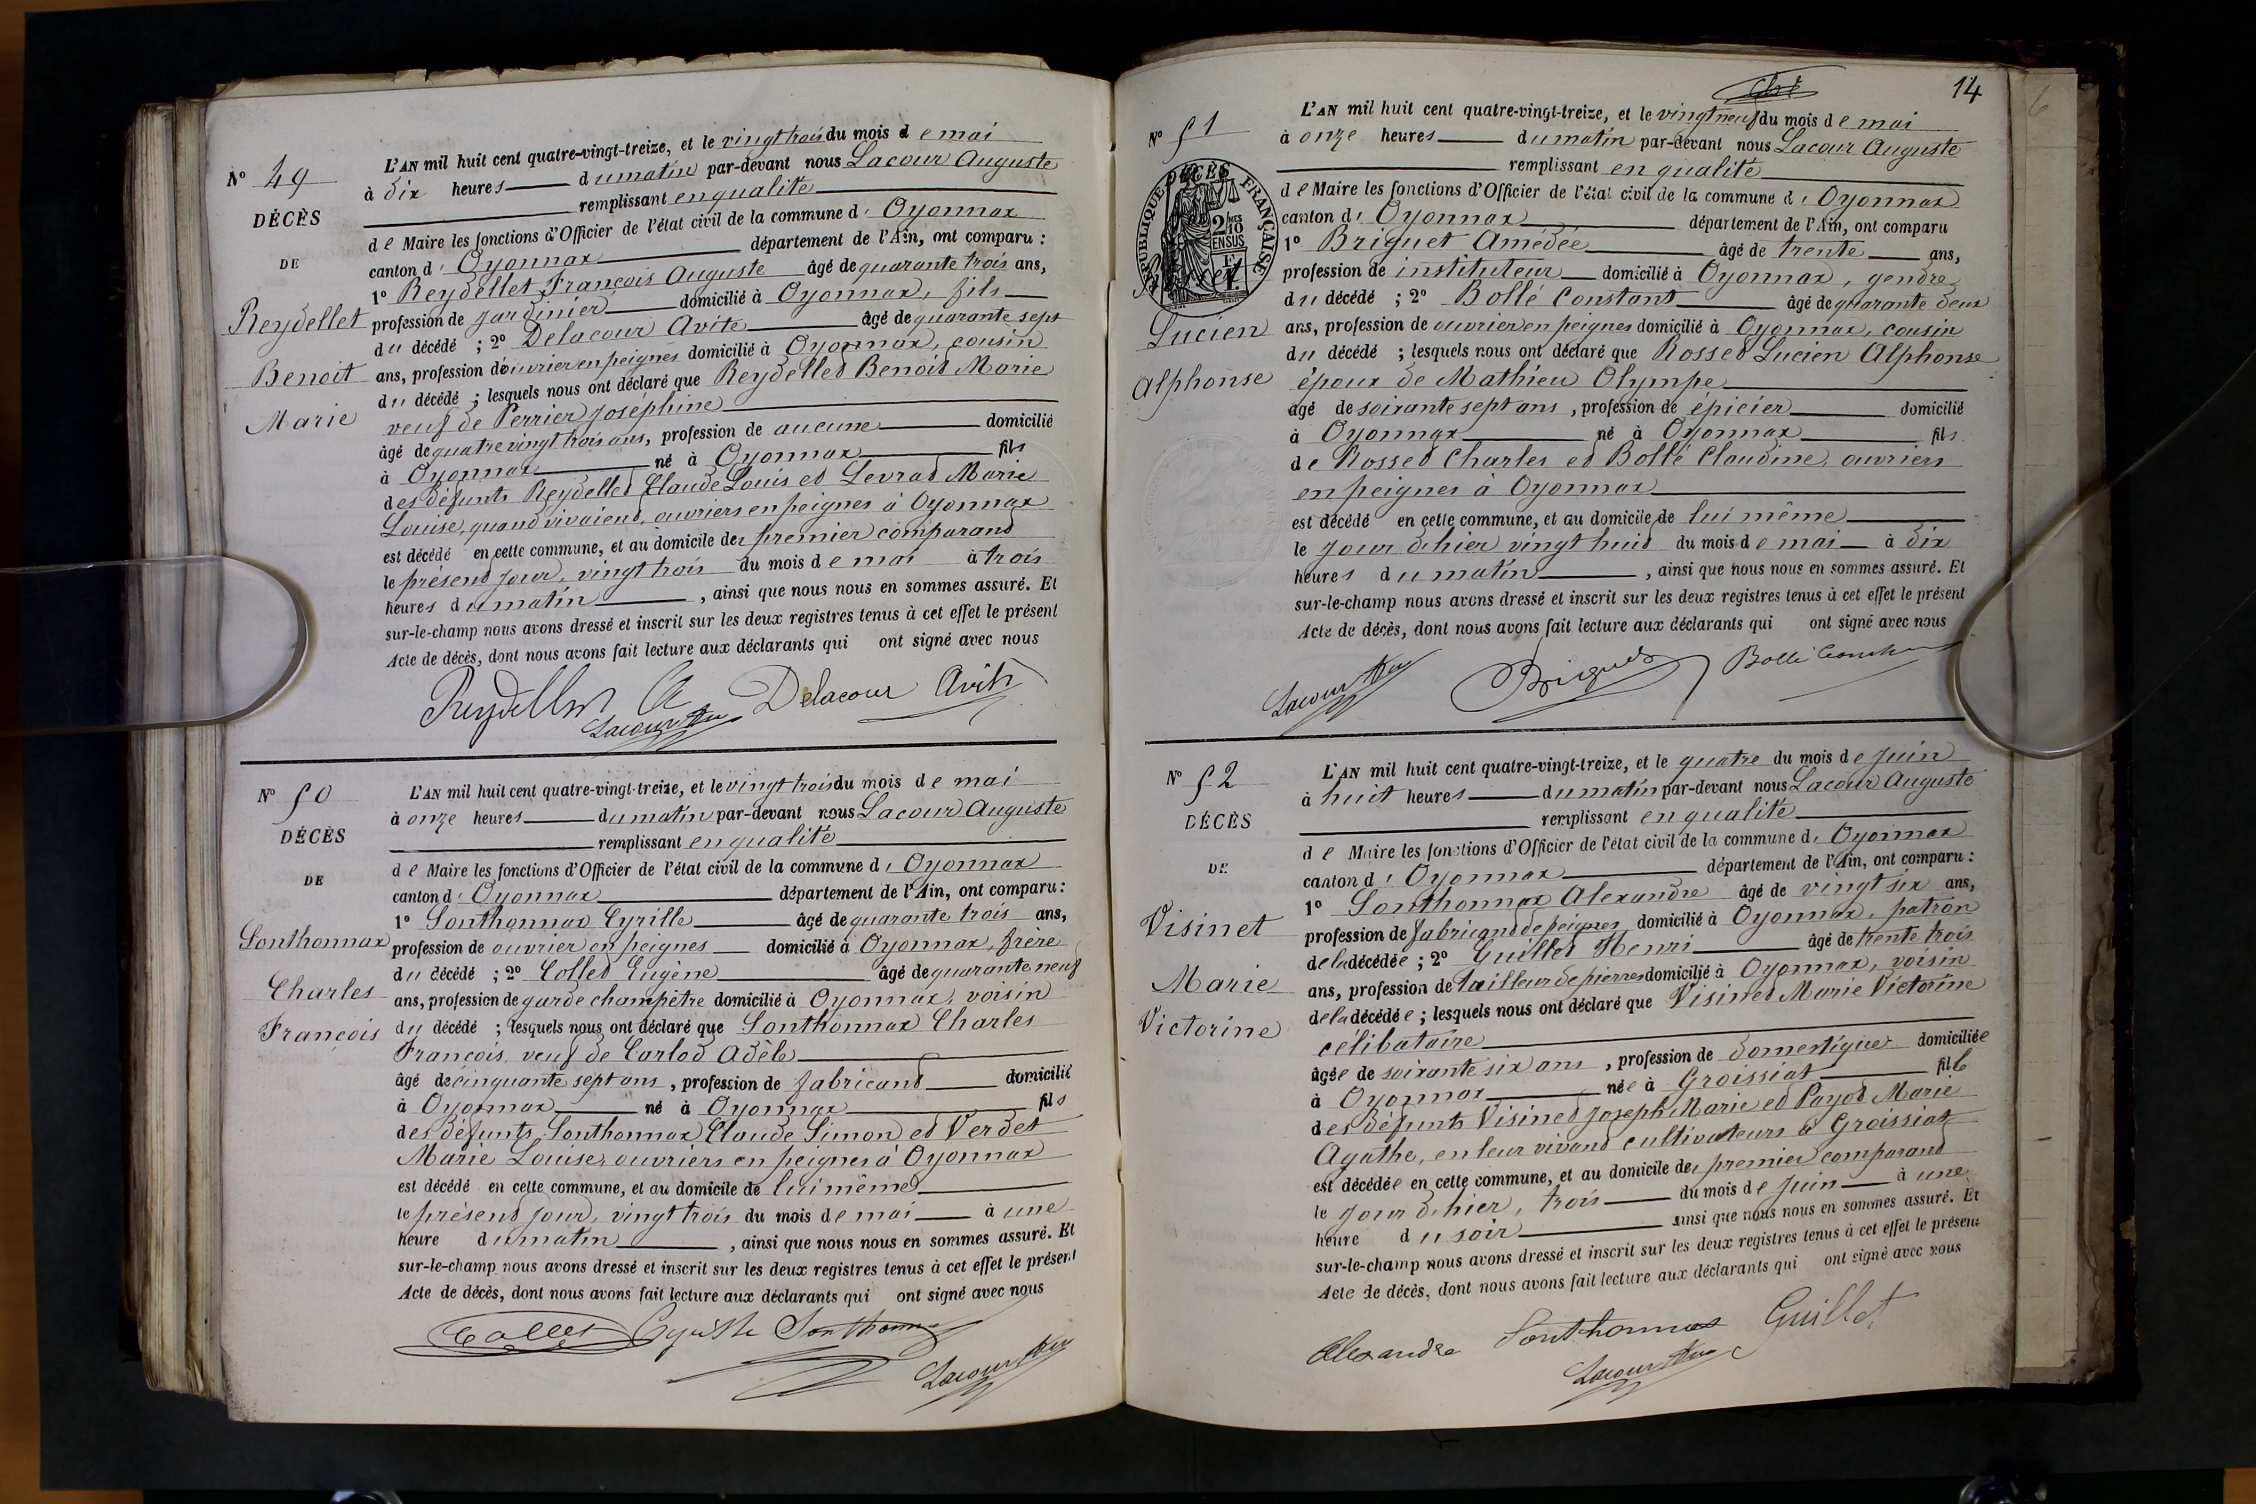 N° 49
DÉCÈS
DE
Reydellet
Benoit
Marie
L'AN mil huit cent quatre-vingt-treize, et le vingt trois du mois de mai
à dix heures du matin par-devant nous Lacour Auguste
remplissant en qualité
de Maire les fonctions d'Officier de l'état civil de la commune d'Oyonnax
canton d'Oyonnax département de l'Ain, ont comparu :
1° Reydellet François Auguste âgé de quarante trois ans,
profession de jardinier domicilié à Oyonnax, fils
du décédé ; 2° Delacour Avite âgé de quarante sept
ans, profession d'ouvrier en peignes domicilié à Oyonnax, cousin
du décédé ; lesquels nous ont déclaré que Reydellet Benoit Marie
veuf de Perrier Joséphine
âgé de quatre vingt trois ans, profession de aucune domicilié
à Oyonnax né à Oyonnax fils
des défunts Reydellet Claude Louis et Levrat Marie
Louise, quand vivaient, ouvriers en peignes à Oyonnax
est décédé en cette commune, et au domicile des premier comparant
le présent jour, vingt trois du mois de mai à trois
heures du matin, ainsi que nous nous en sommes assuré. Et
sur-le-champ nous avons dressé et inscrit sur les deux registres tenus à cet effet le présent
Acte de décès, dont nous avons fait lecture aux déclarants qui ont signé avec nous
Reydellet A Delacour Avite
Lacour Aug
N° 50
DÉCÈS
DE
Sonthonnax
Charles
François
L'AN mil huit cent quatre-vingt-treize, et le vingt trois du mois de mai
à onze heures du matin par-devant nous Lacour Auguste
remplissant en qualité
de Maire les fonctions d'Officier de l'état civil de la commune d'Oyonnax
canton d'Oyonnax département de l'Ain, ont comparu :
1° Sonthonnax Cyrille âgé de quarante trois ans,
profession de ouvrier en peignes domicilié à Oyonnax, frère
du décédé ; 2° Collet Eugène âgé de quarante neuf
ans, profession de garde champêtre domicilié à Oyonnax, voisin
du décédé ; lesquels nous ont déclaré que Sonthonnax Charles
François, veuf de Carlod Adèle
âgé de cinquante sept ans, profession de fabricant domicilié
à Oyonnax né à Oyonnax fils
des défunts Sonthonnax Claude Simon et Verdet
Marie Louise, ouvriers en peignes à Oyonnax
est décédé en cette commune, et au domicile de lui même
le présent jour, vingt trois du mois de mai à une
heure du matin, ainsi que nous nous en sommes assuré. Et
sur-le-champ nous avons dressé et inscrit sur les deux registres tenus à cet effet le présent
Acte de décès, dont nous avons fait lecture aux déclarants qui ont signé avec nous
Collet Cyrille Sonthonnax
Lacour Aug
14
6
N° 51
DÉCÈS
RÉPUBLIQUE FRANÇAISE
2/10
EN SUS
Lucien
Alphonse
L'AN mil huit cent quatre-vingt-treize, et le vingt neuf du mois de mai
à onze heures du matin par-devant nous Lacour Auguste
remplissant en qualité
de Maire les fonctions d'Officier de l'état civil de la commune d'Oyonnax
canton d'Oyonnax département de l'Ain, ont comparu
1° Briguet Amédée âgé de trente ans,
profession de instituteur domicilié à Oyonnax, gendre
du décédé ; 2° Bollé Constant âgé de quarante deux
ans, profession de ouvrier en peignes domicilié à Oyonnax, cousin
du décédé ; lesquels nous ont déclaré que Rosset Lucien Alphonse
époux de Mathieu Olympe
âgé de soixante sept ans, profession de épicier domicilié
à Oyonnax né à Oyonnax fils
de Rosset Charles et Bollé Claudine, ouvriers
en peignes à Oyonnax
est décédé en cette commune, et au domicile de lui même
le jour d'hier vingt huit du mois de mai à dix
heures du matin, ainsi que nous nous en sommes assuré. Et
sur-le-champ nous avons dressé et inscrit sur les deux registres tenus à cet effet le présent
Acte de décès, dont nous avons fait lecture aux déclarants qui ont signé avec nous
Lacour Aug Briguet Bollé Constant
N° 52
DÉCÈS
DE
Visinet
Marie
Victorine
L'AN mil huit cent quatre-vingt-treize, et le quatre du mois de juin
à huit heures du matin par-devant nous Lacour Auguste
remplissant en qualité
de Maire les fonctions d'Officier de l'état civil de la commune d'Oyonnax
canton d'Oyonnax département de l'Ain, ont comparu :
1° Sonthonnax Alexandre âgé de vingt six ans,
profession de fabricant de peignes domicilié à Oyonnax, patron
de la décédée ; 2° Guillet Henri âgé de trente trois
ans, profession de tailleur de pierres domicilié à Oyonnax, voisin
de la décédée ; lesquels nous ont déclaré que Visinet Marie Victorine
célibataire
âgée de soixante six ans, profession de domestique domiciliée
à Oyonnax née à Groissiat fille
des défunts Visinet Joseph Marie et Payod Marie
Agathe, en leur vivant cultivateurs à Groissiat
est décédée en cette commune, et au domicile des premier comparant
le jour d'hier, trois du mois de juin à une
heure du soir ainsi que nous nous en sommes assuré. Et
sur-le-champ nous avons dressé et inscrit sur les deux registres tenus à cet effet le présent
Acte de décès, dont nous avons fait lecture aux déclarants qui ont signé avec nous
Alexandre Sonthonnax Guillet
Lacour Aug